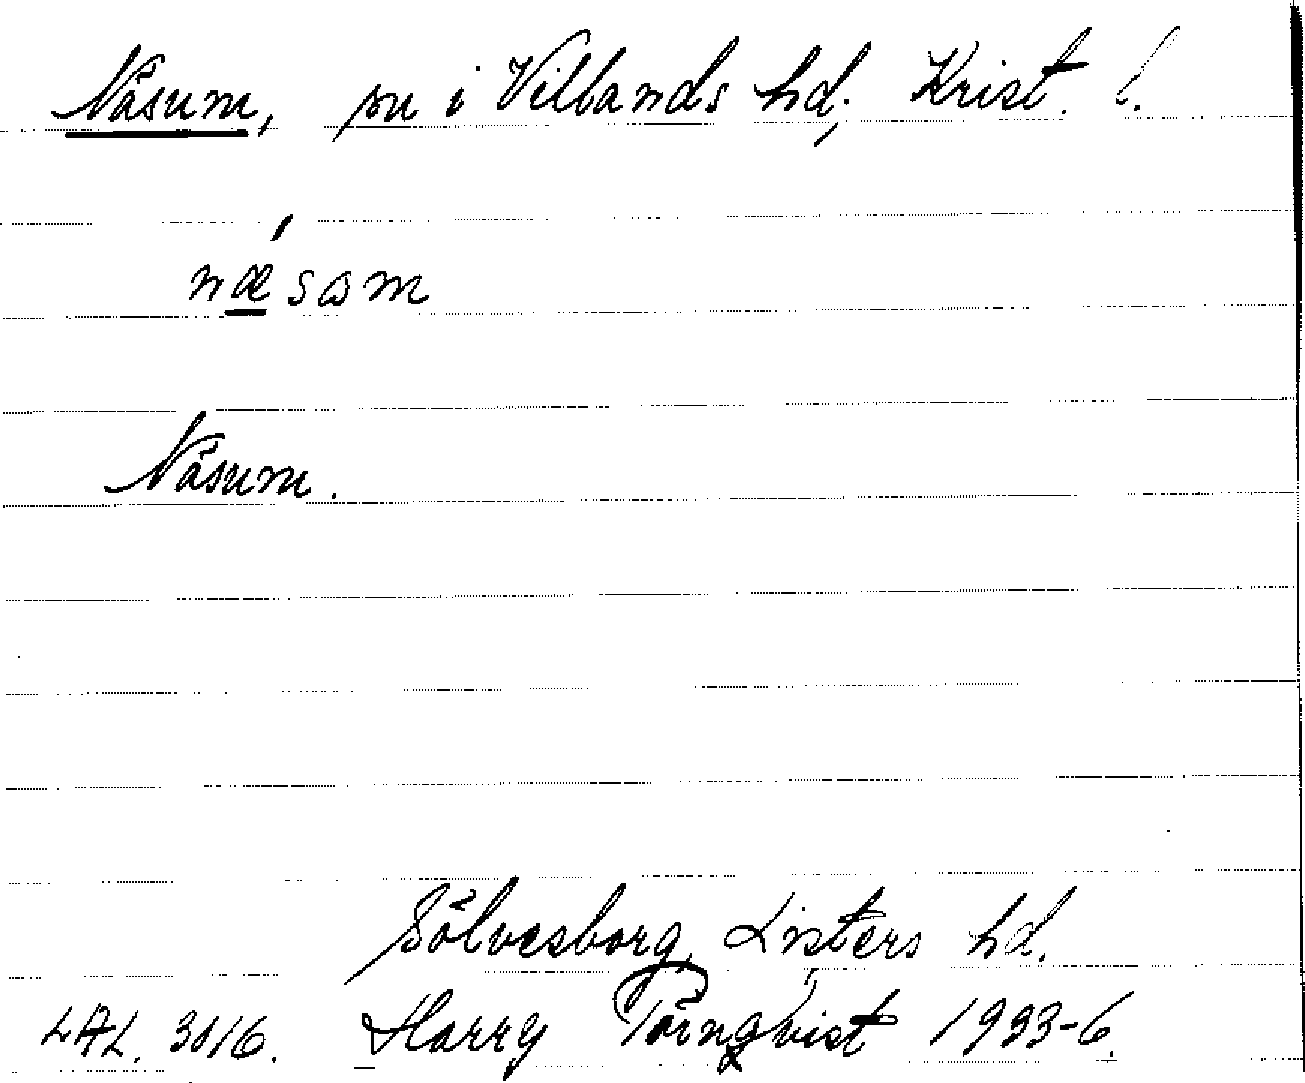 Näsum, sn i Villands hd, Krist. l.
næsam
Näsum.
Sölvesborg, Listers hd.
LAL. 3016. Harry Törnqvist 1933-6.